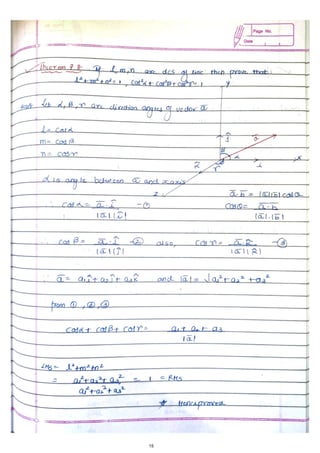 Page No.
Date
Theorem 7.8: If l, m, n are dcs of line then prove that:
l²+m²+n²=1, cos²α+cos²β+cos²r=1
Let α, β, r are direction angles of vector a̅
l = cosα
m = cosβ
n = cosr
α is angle between a̅ and x axis
a̅·b̅ = |a̅||b̅| cosθ
∴ cosα = a̅·î / |a̅||î| -①
cosθ = a̅·b̅ / |a̅|·|b̅|
cosβ = a̅·ĵ / |a̅||ĵ| -② also, cosr = a̅·k̂ / |a̅||k̂| -③
∴ a̅ = a₁î + a₂ĵ + a₃k̂ and |a̅| = √a₁²+a₂²+a₃²
from ①, ②, ③
cosα + cosβ + cosr = a₁+a₂+a₃ / |a̅|
LHS = l²+m²+n²
= a₁²+a₂²+a₃² / a₁²+a₂²+a₃² = 1 = RHS
Hence proved